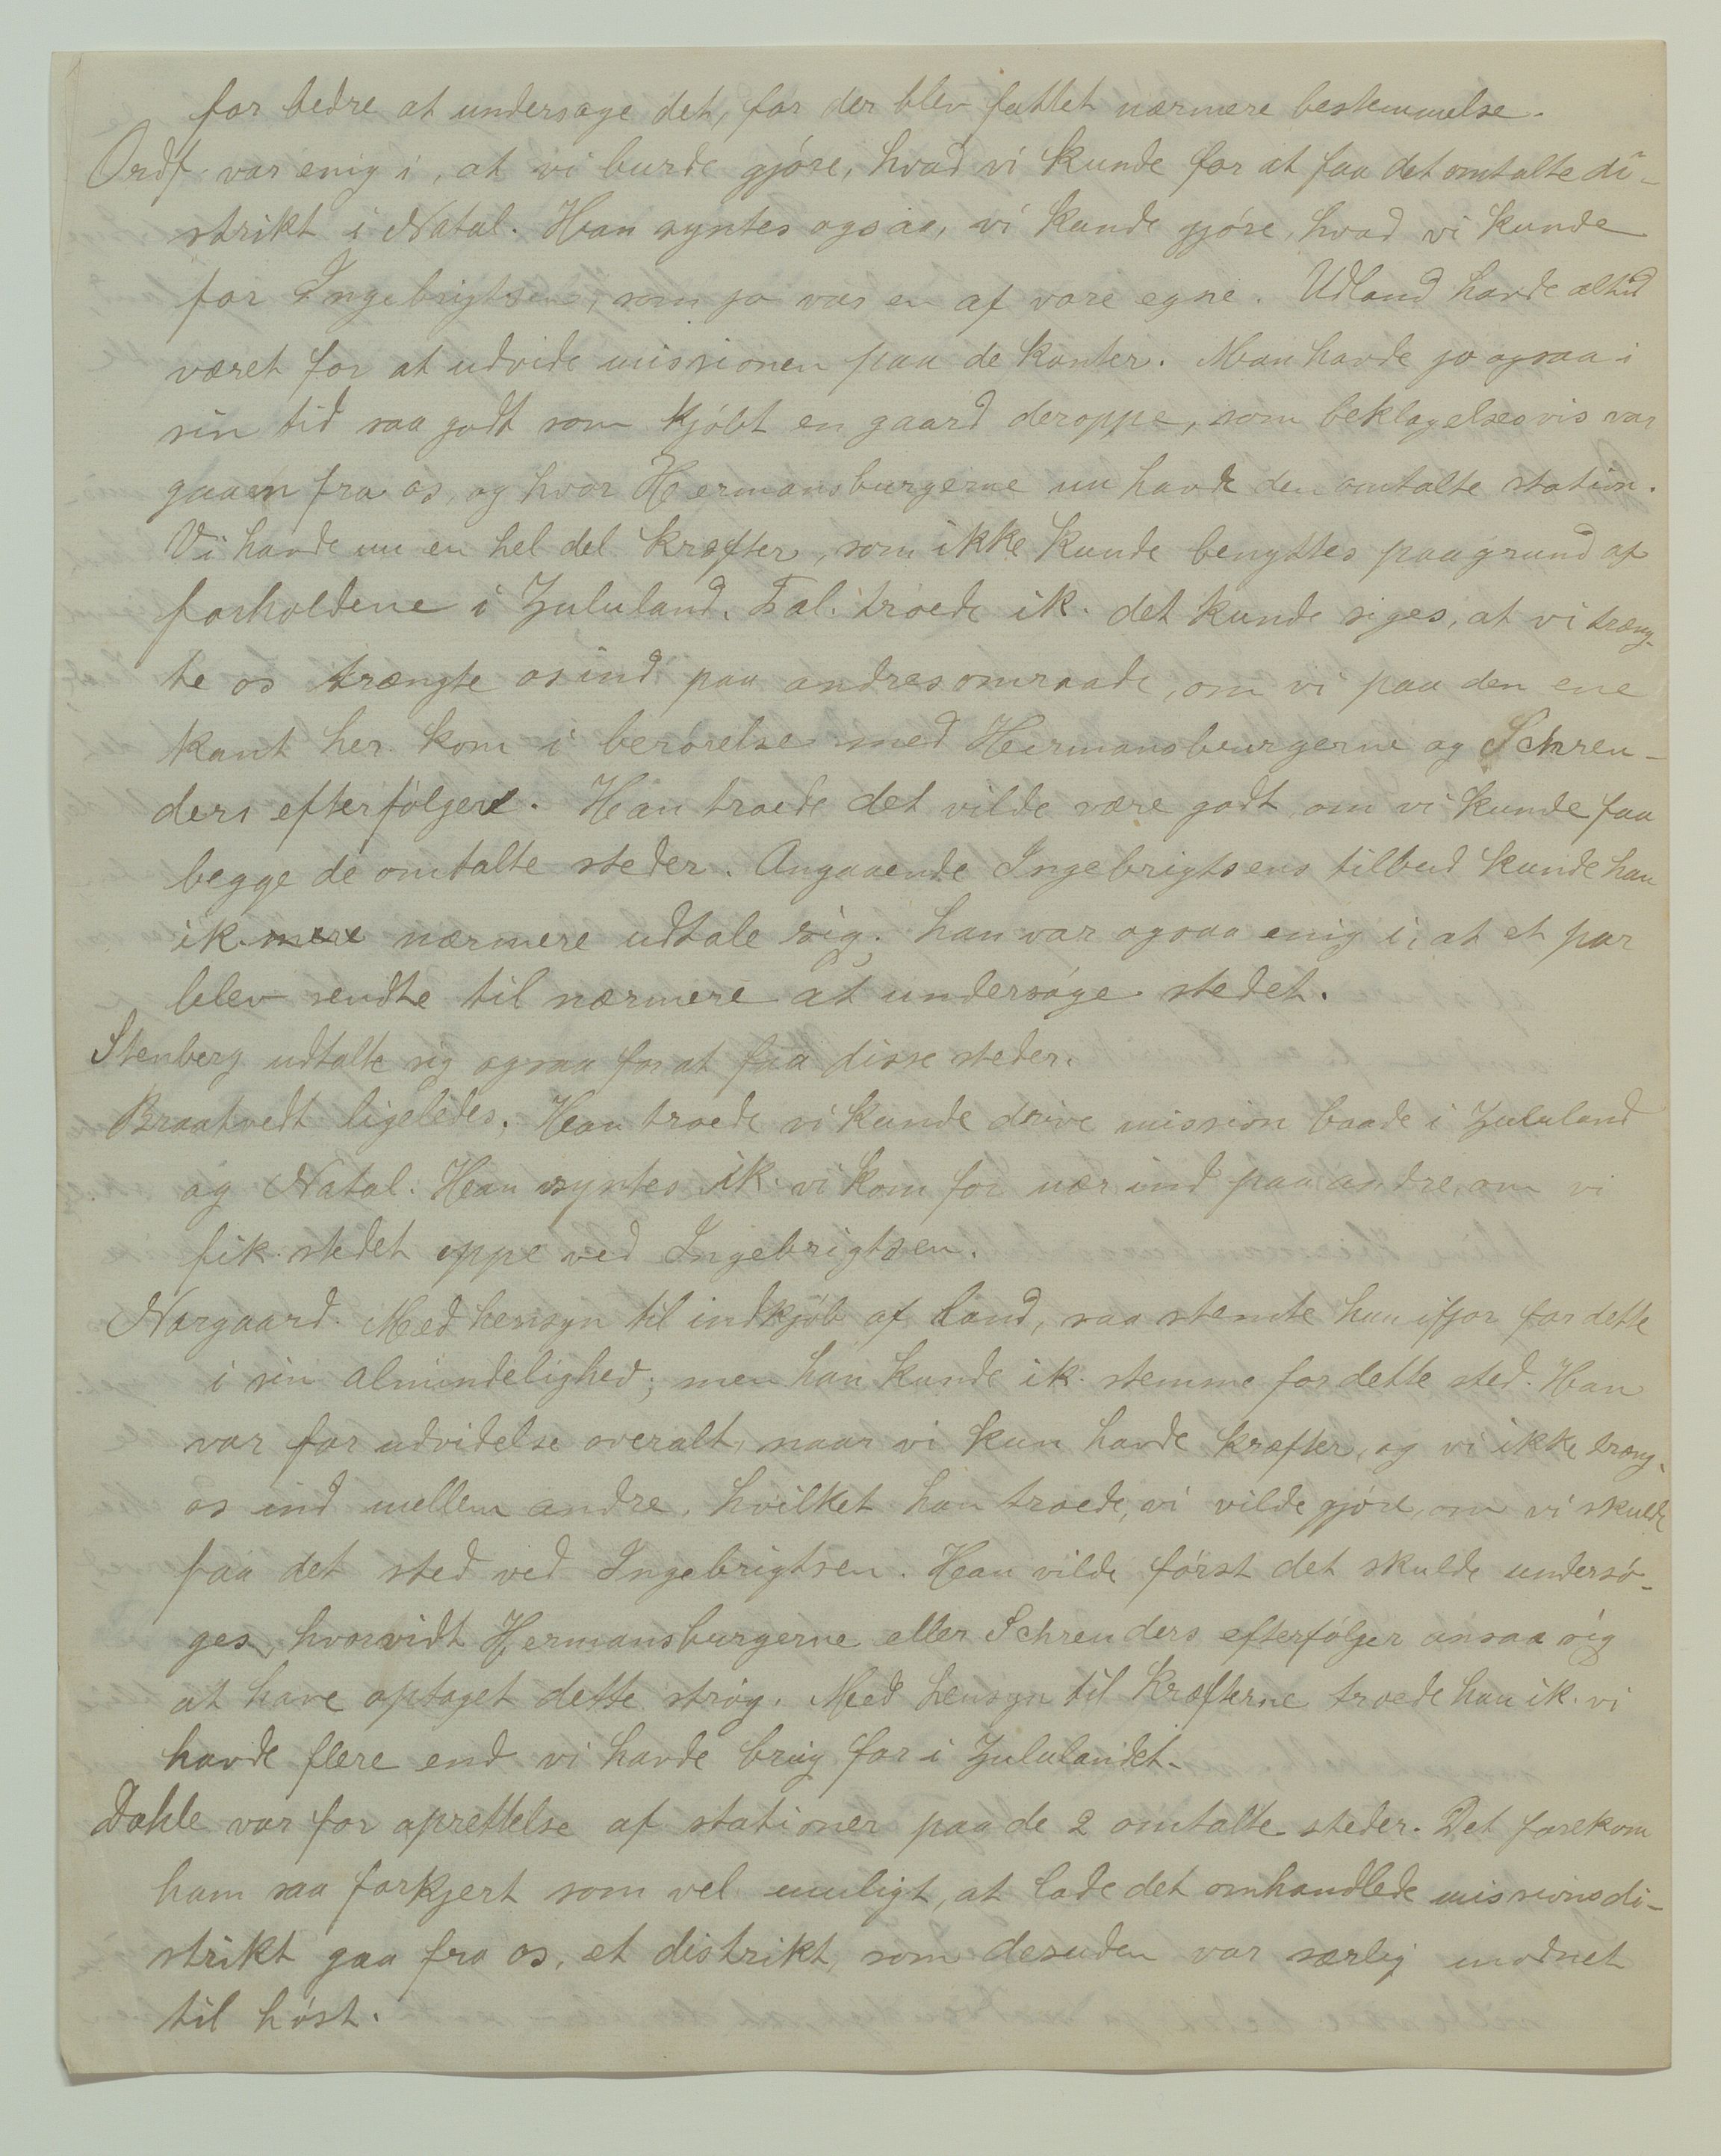 for bedre at undersøge det, før der blev fattet nærmere bestemmelse.
Ordf. var enig i, at vi burde gjöre, hvad vi kunde for at faa det omtalte di-
strikt i Natal. Han syntes ogsaa, vi kunde gjöre, hvad vi kunde
for Ingebrigtsen, som jo var en af vore egne. Udland havde altid
været for at udvide missionen paa de kanter. Man havde jo ogsaa i
sin tid saa godt som kjöbt en gaard deroppe, som beklagelsesvis var
gaaen fra os, og hvor Hermansburgerne nu havde den omtalte station.
Vi havde nu en hel del kræfter, som ikke kunde benyttes paa grund af
forholdene i Zululand. Tal. troede ik. det kunde siges, at vi træng-
te os trængte os ind paa andres omraade, om vi paa den ene
kant her kom i berörelse med Hermansburgerne og Schreu-
ders efterfölgere. Han troede det vilde være godt, om vi kunde faa
begge de omtalte steder. Angaaende Ingebrigtsens tilbud kunde han
ik. mere nærmere udtale sig; han var ogsaa enig i, at et par
blev sendte til nærmere at undersöge stedet.
Stenberg udtalte sig ogsaa for at faa disse steder.
Braatvedt ligeledes. Han troede vi kunde drive mission baade i Zululand
og Natal. Han syntes ik. vi kom for nær ind paa andre, om vi
fik stedet oppe ved Ingebrigtsen.
Norgaard. Med hensyn til indkjöb af land, saa stemte han ifjor for dette
i sin almindelighed; men han kunde ik. stemme for dette sted. Han
var for udvidelse overalt, naar vi kun havde kræfter, og vi ikke træng-
os ind mellem andre, hvilket han troede, vi vilde gjöre, om vi skulde
faa det sted ved Ingebrigtsen. Han vilde först det skulde undersö-
ges, hvorvidt Hermansburgerne eller Schreuders efterfölger ansaa sig
at have optaget dette strög. Med hensyn til kræfterne troede han ik. vi
havde flere end vi havde brug for i Zululandet.
Dahle var for oprettelse af stationer paa de 2 omtalte steder. Det forekom
ham saa forkjert som vel muligt, at lade det omhandlede missionsdi-
strikt gaa fra os, et distrikt, som desuden var særlig modnet
til höst.